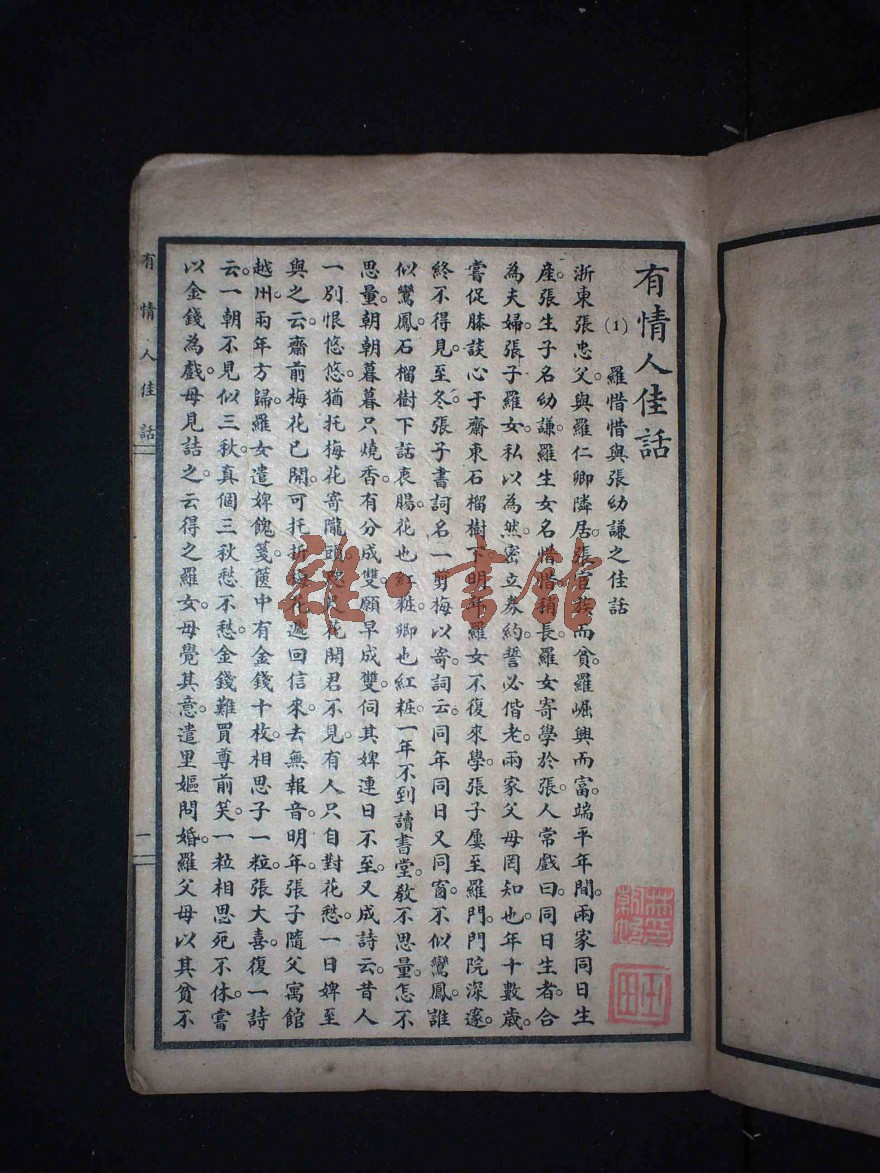 有情人佳話
(1) 羅惜惜與張幼謙之佳話
浙東張忠父。與羅仁卿隣居。張宦族而貧。羅崛興而富。端平年間。兩家同日生
產。張生子名幼謙。羅生女名惜惜。稍長。羅女寄學於張。人常戲曰。同日生者。合
為夫婦。張子羅女。私以為然。密立券約。誓必偕老。兩家父母罔知也。年十數歲。
嘗促膝談心于齋東石榴樹下。明年。羅女不復來學。張子屢至羅門。門院深邃。
終不得見。至冬。張子書詞名一剪梅以寄。詞云。同年同日又同窗。不似鸞鳳。誰
似鸞鳳。石榴樹下話衷腸。花也紅粧。卿也紅粧。一年不到讀書堂。教不思量。怎不
思量。朝朝暮暮只燒香。有分成雙。願早成雙。伺其婢連日不至。又成詩云。昔人
一別恨悠悠。猶托梅花寄隴頭。花開君不見。有人只自對花愁。一日婢至
與之云。齋前梅花已開。可托折梅花遞回信來。去無報音。明年。張子隨父寓館
越州。兩年方歸。羅女遣婢餽箋。篋中有金錢十枚。相思子一粒。張大喜。復一詩
云。一朝不見似三秋。真個三秋愁不愁。金錢難買尊前笑。一粒相思死不休。嘗
以金錢為戲。母見詰之。云得之羅女。母覺其意。遣里嫗問婚。羅父母以其貧不
有情人佳話
一
雜·書館